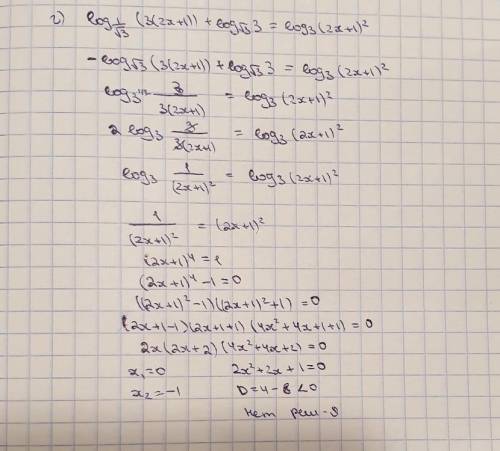 г) log_{1/√3} (3(2x+1)) + log_{√3} 3 = log_3 (2x+1)^2
-log_{√3} (3(2x+1)) + log_{√3} 3 = log_3 (2x+1)^2
log_{3^{1/2}} 3/(3(2x+1)) = log_3 (2x+1)^2
2 log_3 3/(3(2x+1)) = log_3 (2x+1)^2
log_3 1/(2x+1)^2 = log_3 (2x+1)^2
1/(2x+1)^2 = (2x+1)^2
(2x+1)^4 = 1
(2x+1)^4 - 1 = 0
((2x+1)^2 - 1)((2x+1)^2 + 1) = 0
(2x+1-1)(2x+1+1)(4x^2+4x+1+1) = 0
2x(2x+2)(4x^2+4x+2) = 0
x_1 = 0 2x^2+2x+1 = 0
x_2 = -1 D = 4 - 8 < 0
нет реш-я